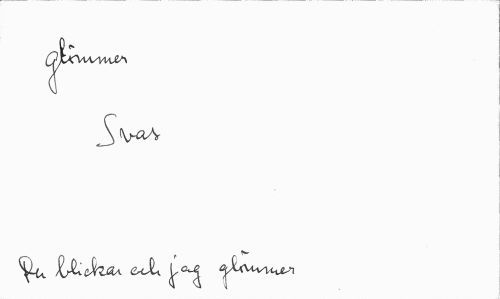 glömmer
Svas
Du blickar och jag glömmer